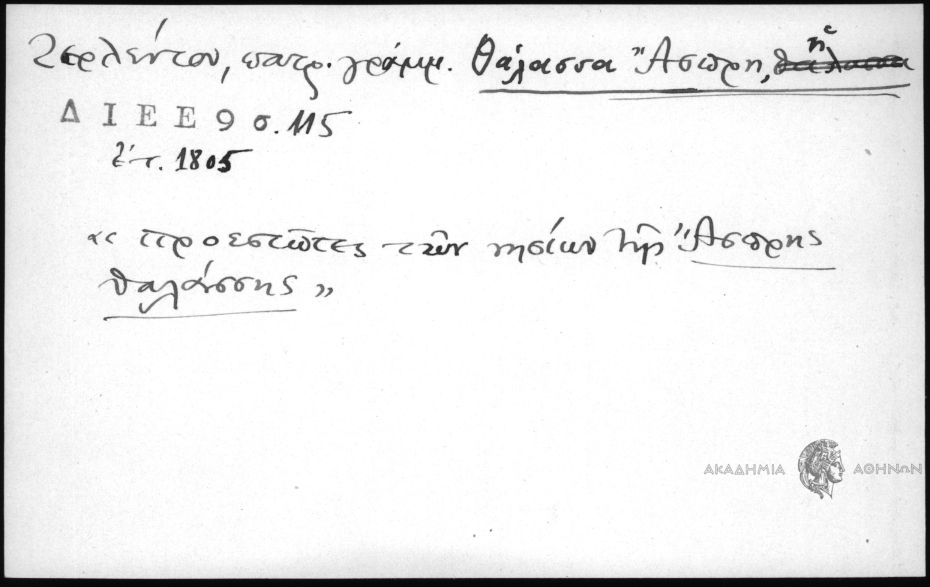 Ζερλέντου, πατρ. γράμμ. Θάλασσα Ἄσπρη, ἡ ~~θάλασσα~~
ΔΙΕΕ 9 σ. 115
ἔτ. 1805
«προεστῶτες τῶν νησίων τῆς Ἄσπρης
θαλάσσης»
ΑΚΑΔΗΜΙΑ ΑΘΗΝΩΝ